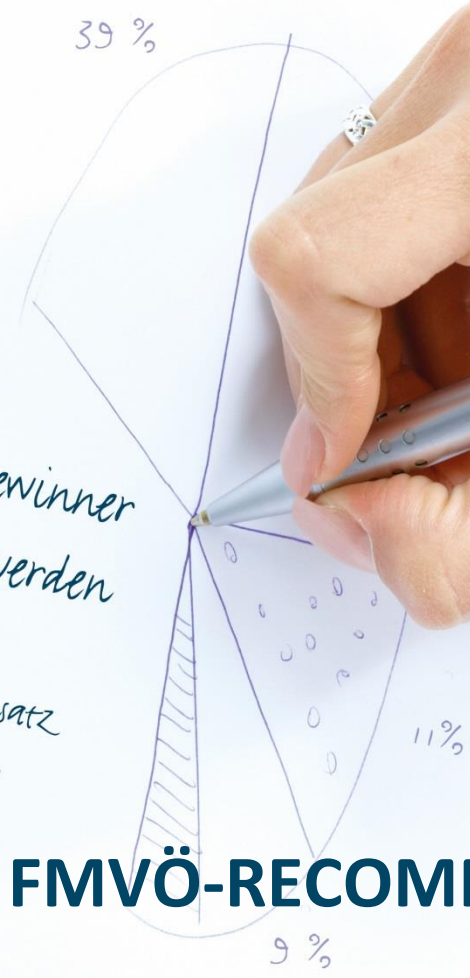 39 %
ewinner
verden
satz
11%
FMVÖ-RECOM
9 %